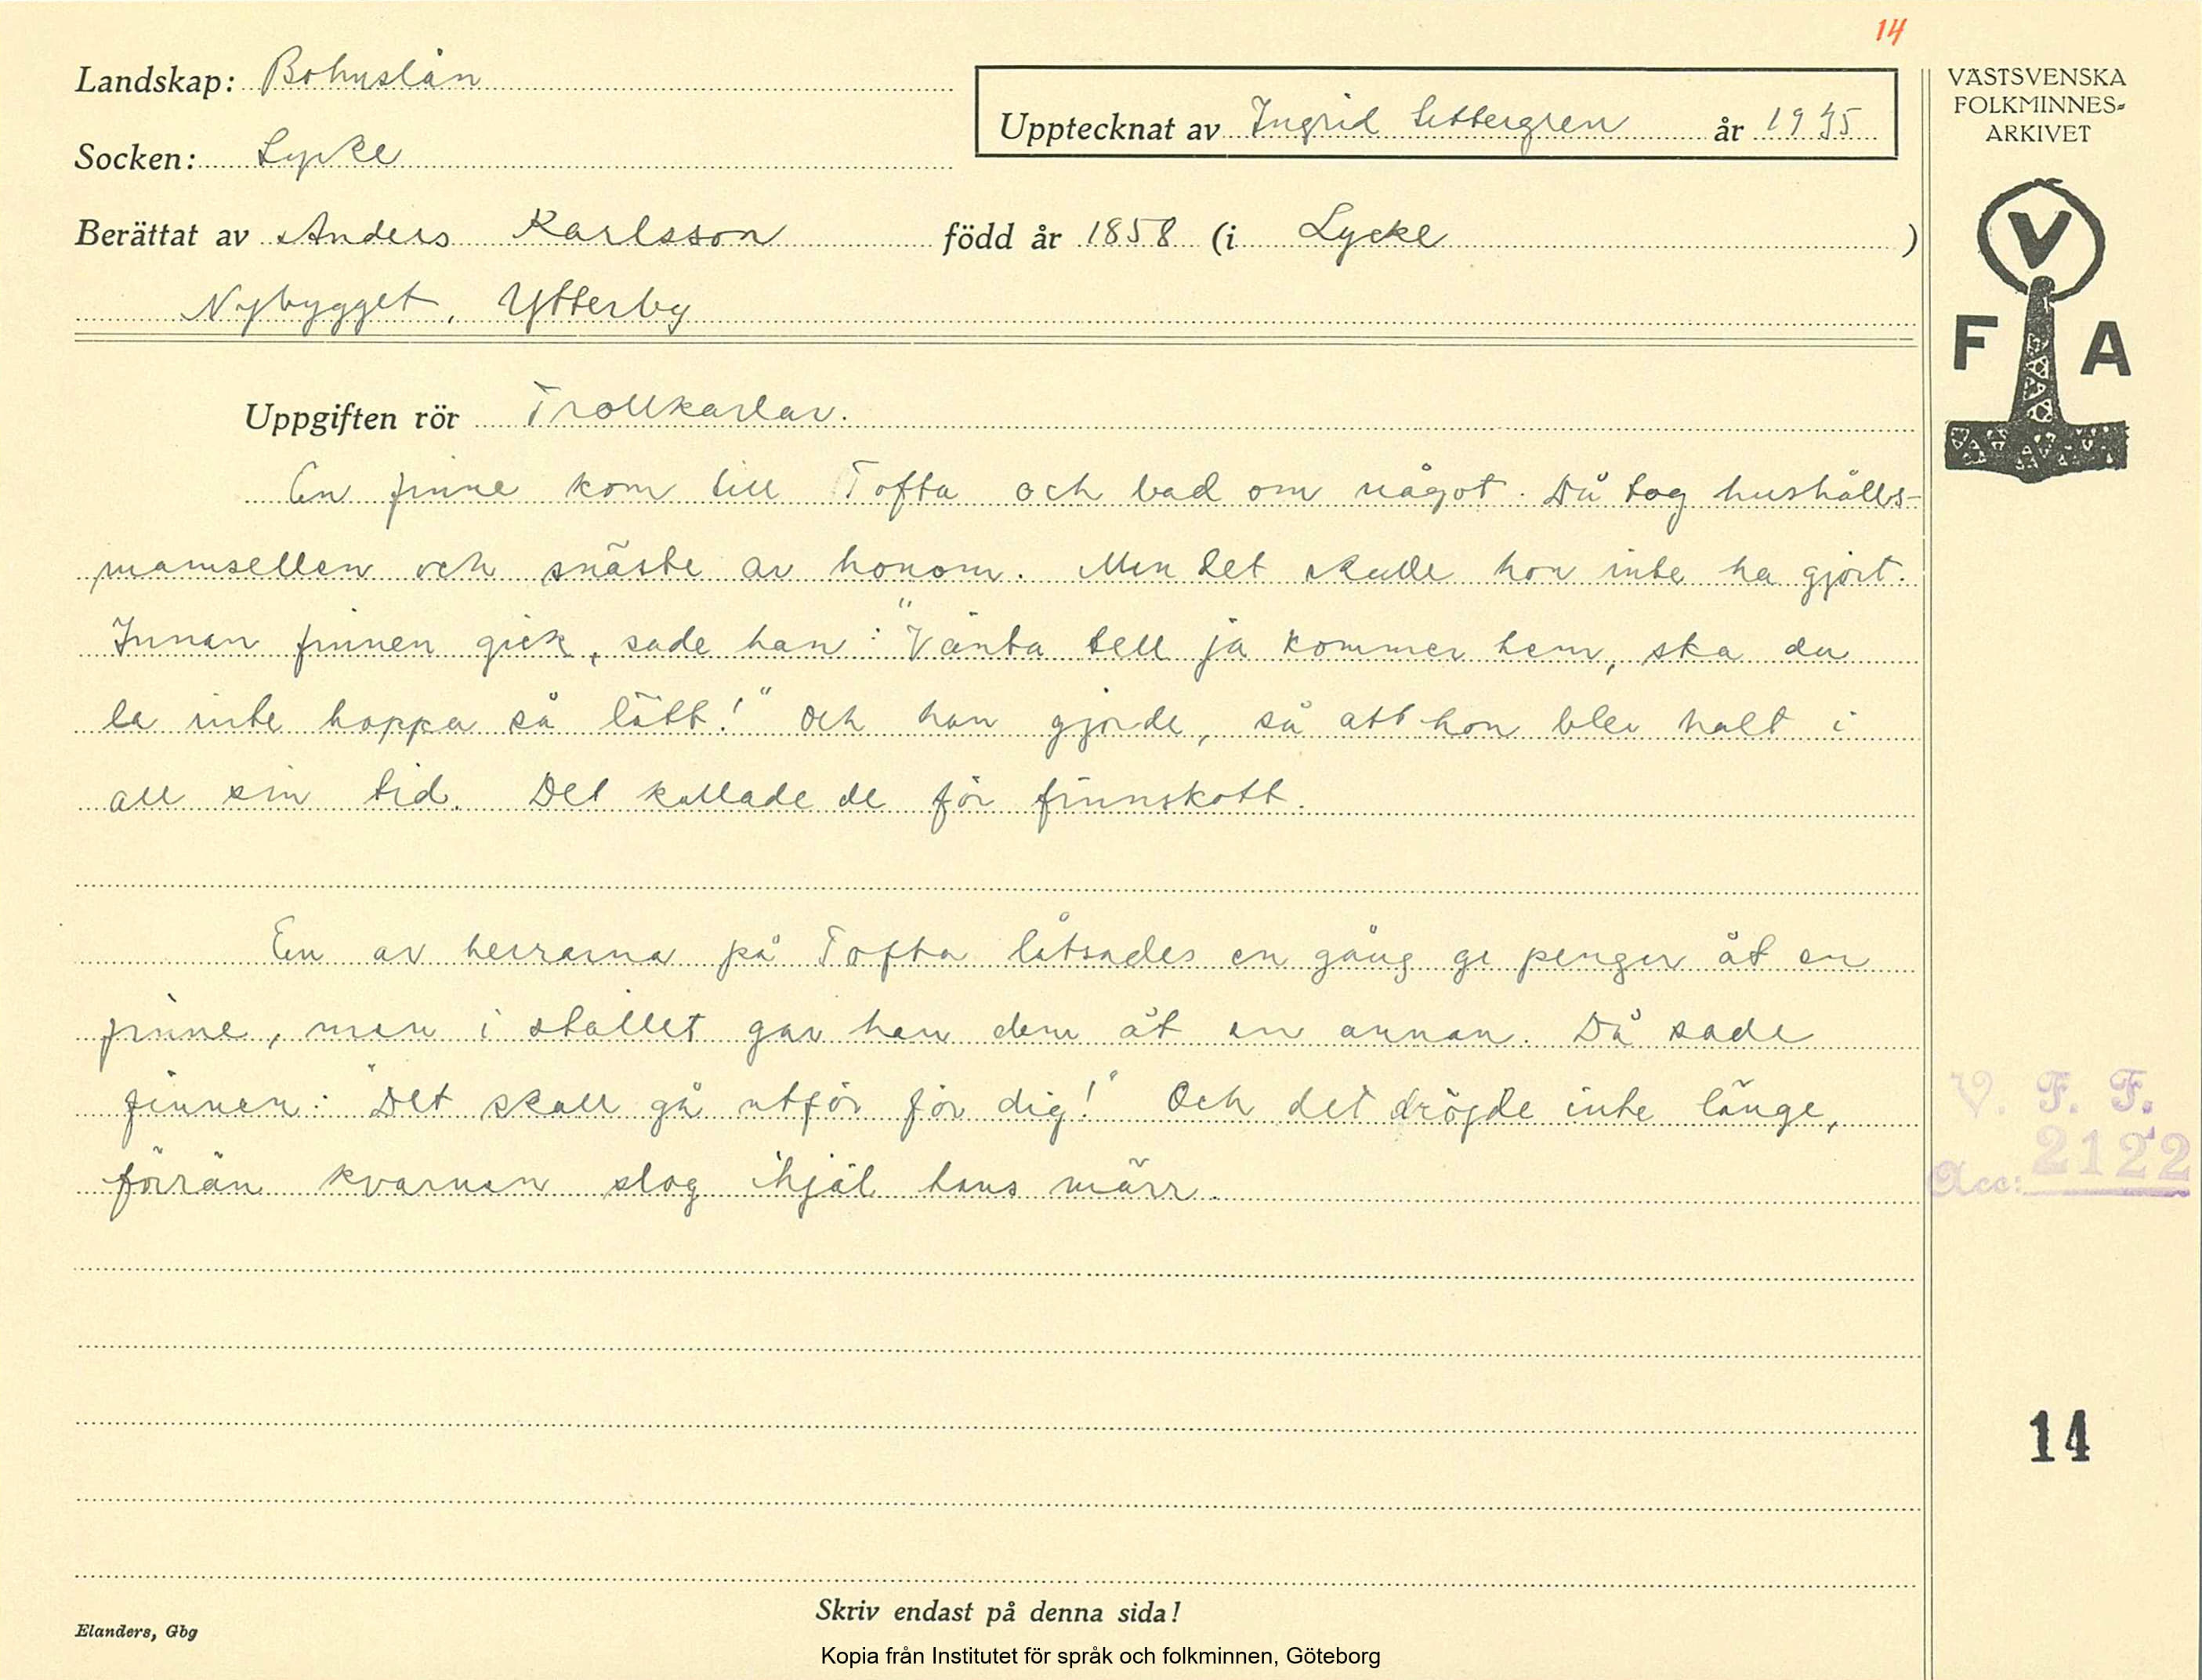 14
Landskap: Bohuslän
Upptecknat av Ingrid Settergren år 1935
Socken: Lycke
Berättat av Anders Karlsson född år 1858 (i Lycke )
Nybygget, Ytterby
Uppgiften rör Trollkarlar.
En finne kom till Tofta och bad om något. Då tog hushålls-
mamsellen och snäste av honom. Men det skulle hon inte ha gjort.
Innan finnen gick, sade han: "Vänta tell ja kommer hem, ska du
la inte hoppa så lätt!" Och han gjorde, så att hon blev halt i
all sin tid. Det kallade de för finnskott.
En av herrarna på Tofta låtsades en gång ge penger åt en
finne, men i stället gav han dem åt en annan. Då sade
finnen: "Det skall gå utför för dig!" Och det dröjde inte länge,
förrän kvarnen slog ihjäl hans märr.
Skriv endast på denna sida!
Elanders, Gbg
Kopia från Institutet för språk och folkminnen, Göteborg
VÄSTSVENSKA
FOLKMINNES-
ARKIVET
V
F A
V. F. F.
Acc: 2122
14